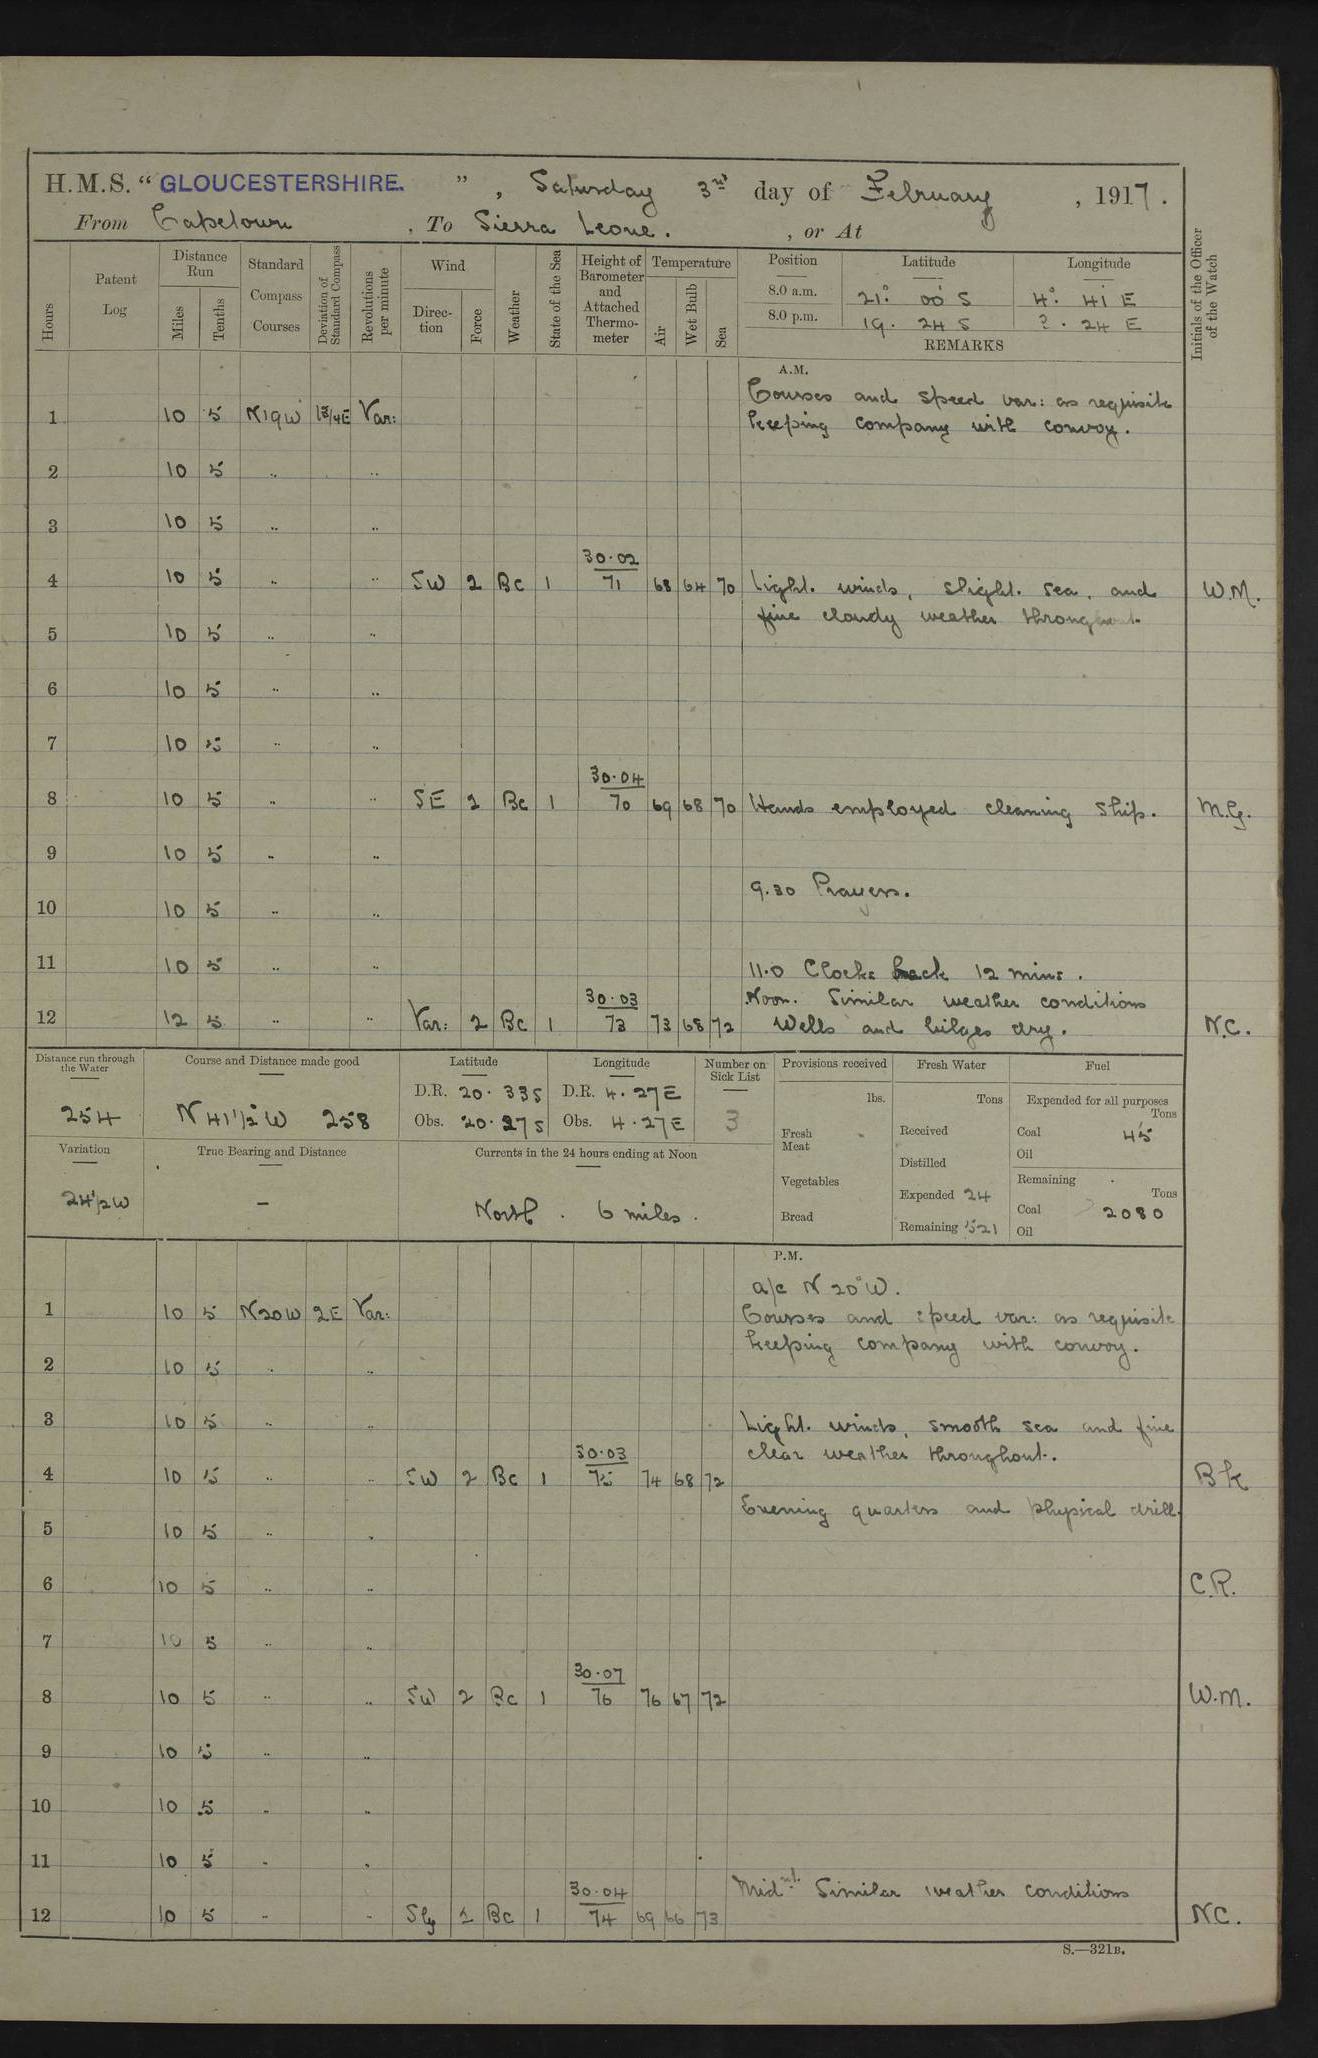 H.M.S. “ GLOUCESTERSHIRE. ” , Saturday 3rd day of February , 1917.
From Capetown , To Sierra Leone. , or At
Hours
Patent Log
Distance Run
Miles
Tenths
Standard Compass Courses
Deviation of Standard Compass
Revolutions per minute
Wind
Direction
Force
Weather
State of the Sea
Height of Barometer and Attached Thermometer
Temperature
Air
Wet Bulb
Sea
Position Latitude Longitude
8.0 a.m. 21° 00' S 4° 41' E
8.0 p.m. 19. 24 S ? . 24 E
REMARKS
Initials of the Officer of the Watch
A.M.
Courses and speed var: as requisite
1 10 5 N19W 1¾E Var: keeping company with convoy.
2 10 5 " "
3 10 5 " "
30.02
4 10 5 " " SW 2 Bc 1 71 68 64 70 Light winds, slight sea, and W.M.
fine cloudy weather throughout.
5 10 5 " "
6 10 5 " "
7 10 5 " "
30.04
8 10 5 " " SE 2 Bc 1 70 69 68 70 Hands employed cleaning ship. M.G.
9 10 5 " "
9.30 Prayers.
10 10 5 " "
11 10 5 " " 11.0 Clocks back 12 mins.
30.03 Noon. Similar weather conditions
12 12 5 " " Var: 2 Bc 1 73 73 68 72 Wells and bilges dry. N.C.
Distance run through the Water
254
Course and Distance made good
N 41½° W 258
Latitude
D.R. 20. 33 S
Obs. 20. 27 S
Longitude
D.R. 4. 27 E
Obs. 4. 27 E
Number on Sick List
3
Variation
24½ W
True Bearing and Distance
–
Currents in the 24 hours ending at Noon
North . 6 miles.
Provisions received
lbs.
Fresh Meat
Vegetables
Bread
Fresh Water
Tons
Received
Distilled
Expended 24
Remaining 521
Fuel
Expended for all purposes
Tons
Coal 45
Oil
Remaining
Tons
Coal 2080
Oil
P.M.
a/c N 20° W.
1 10 5 N20W 2E Var: Courses and speed var: as requisite
keeping company with convoy.
2 10 5 " "
3 10 5 " " Light winds, smooth sea and fine
30.03 clear weather throughout.
4 10 5 " " SW 2 Bc 1 75 74 68 72 BK
Evening quarters and physical drill.
5 10 5 " "
6 10 5 " " C.R.
7 10 5 " "
30.07
8 10 5 " " SW 2 Bc 1 76 76 67 72 W.M.
9 10 5 " "
10 10 5 " "
11 10 5 " "
30.04 Midnt. Similar weather conditions
12 10 5 " " Sly 2 Bc 1 74 69 66 73 N.C.
S.—321B.